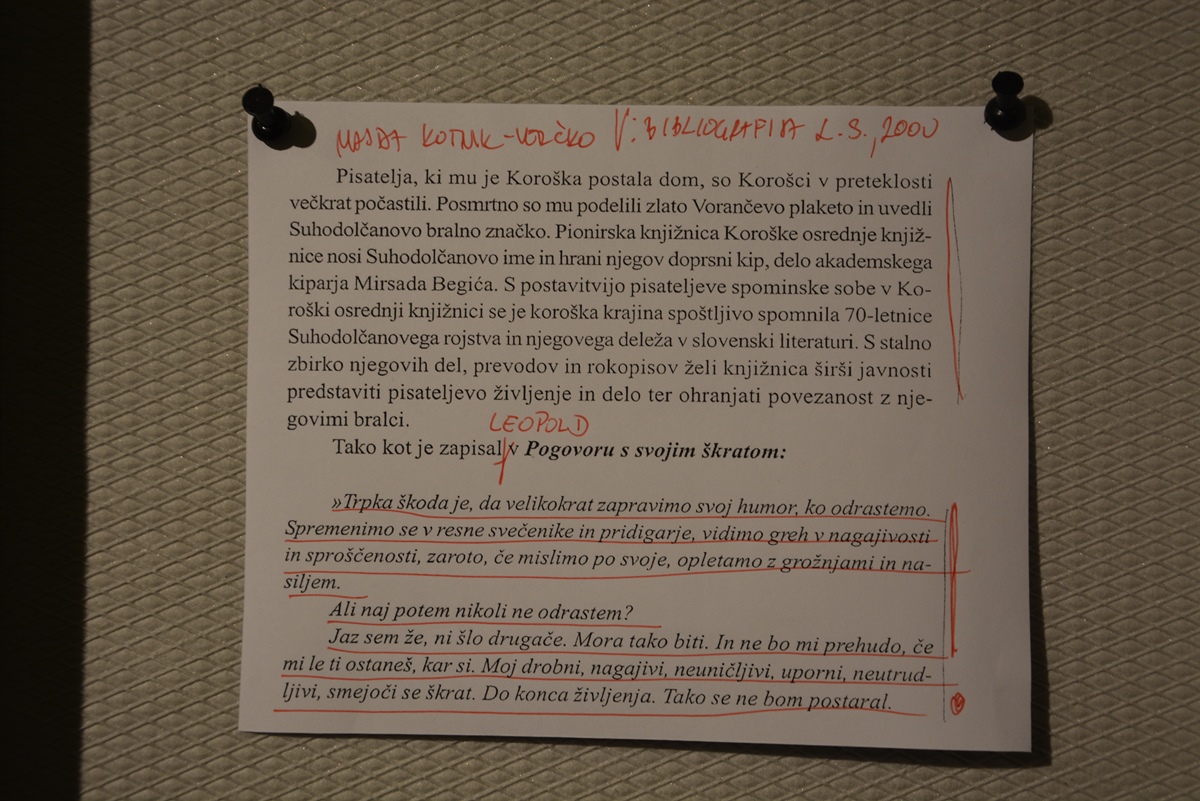 MAJDA KOTNIK-VERČKO V: BIBLIOGRAFIJA L. S., 2000
Pisatelja, ki mu je Koroška postala dom, so Korošci v preteklosti
večkrat počastili. Posmrtno so mu podelili zlato Vorančevo plaketo in uvedli
Suhodolčanovo bralno značko. Pionirska knjižnica Koroške osrednje knjiž-
nice nosi Suhodolčanovo ime in hrani njegov doprsni kip, delo akademskega
kiparja Mirsada Begića. S postavitvijo pisateljeve spominske sobe v Ko-
roški osrednji knjižnici se je koroška krajina spoštljivo spomnila 70-letnice
Suhodolčanovega rojstva in njegovega deleža v slovenski literaturi. S stalno
zbirko njegovih del, prevodov in rokopisov želi knjižnica širši javnosti
predstaviti pisateljevo življenje in delo ter ohranjati povezanost z nje-
govimi bralci.
LEOPOLD
Tako kot je zapisal v Pogovoru s svojim škratom:
»Trpka škoda je, da velikokrat zapravimo svoj humor, ko odrastemo.
Spremenimo se v resne svečenike in pridigarje, vidimo greh v nagajivosti
in sproščenosti, zaroto, če mislimo po svoje, opletamo z grožnjami in na-
siljem.
Ali naj potem nikoli ne odrastem?
Jaz sem že, ni šlo drugače. Mora tako biti. In ne bo mi prehudo, če
mi le ti ostaneš, kar si. Moj drobni, nagajivi, neuničljivi, uporni, neutrud-
ljivi, smejoči se škrat. Do konca življenja. Tako se ne bom postaral.